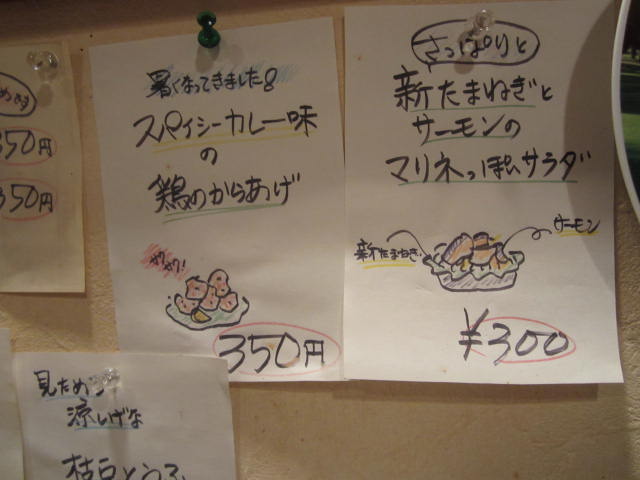 350円
350円
暑くなってきました!
スパイシーカレー味
の
鶏のからあげ
350円
さっぱりと
新たまねぎと
サーモンの
マリネっぽいサラダ
新たまねぎ
サーモン
¥300
見ためも
涼しげな
枝豆とうふ